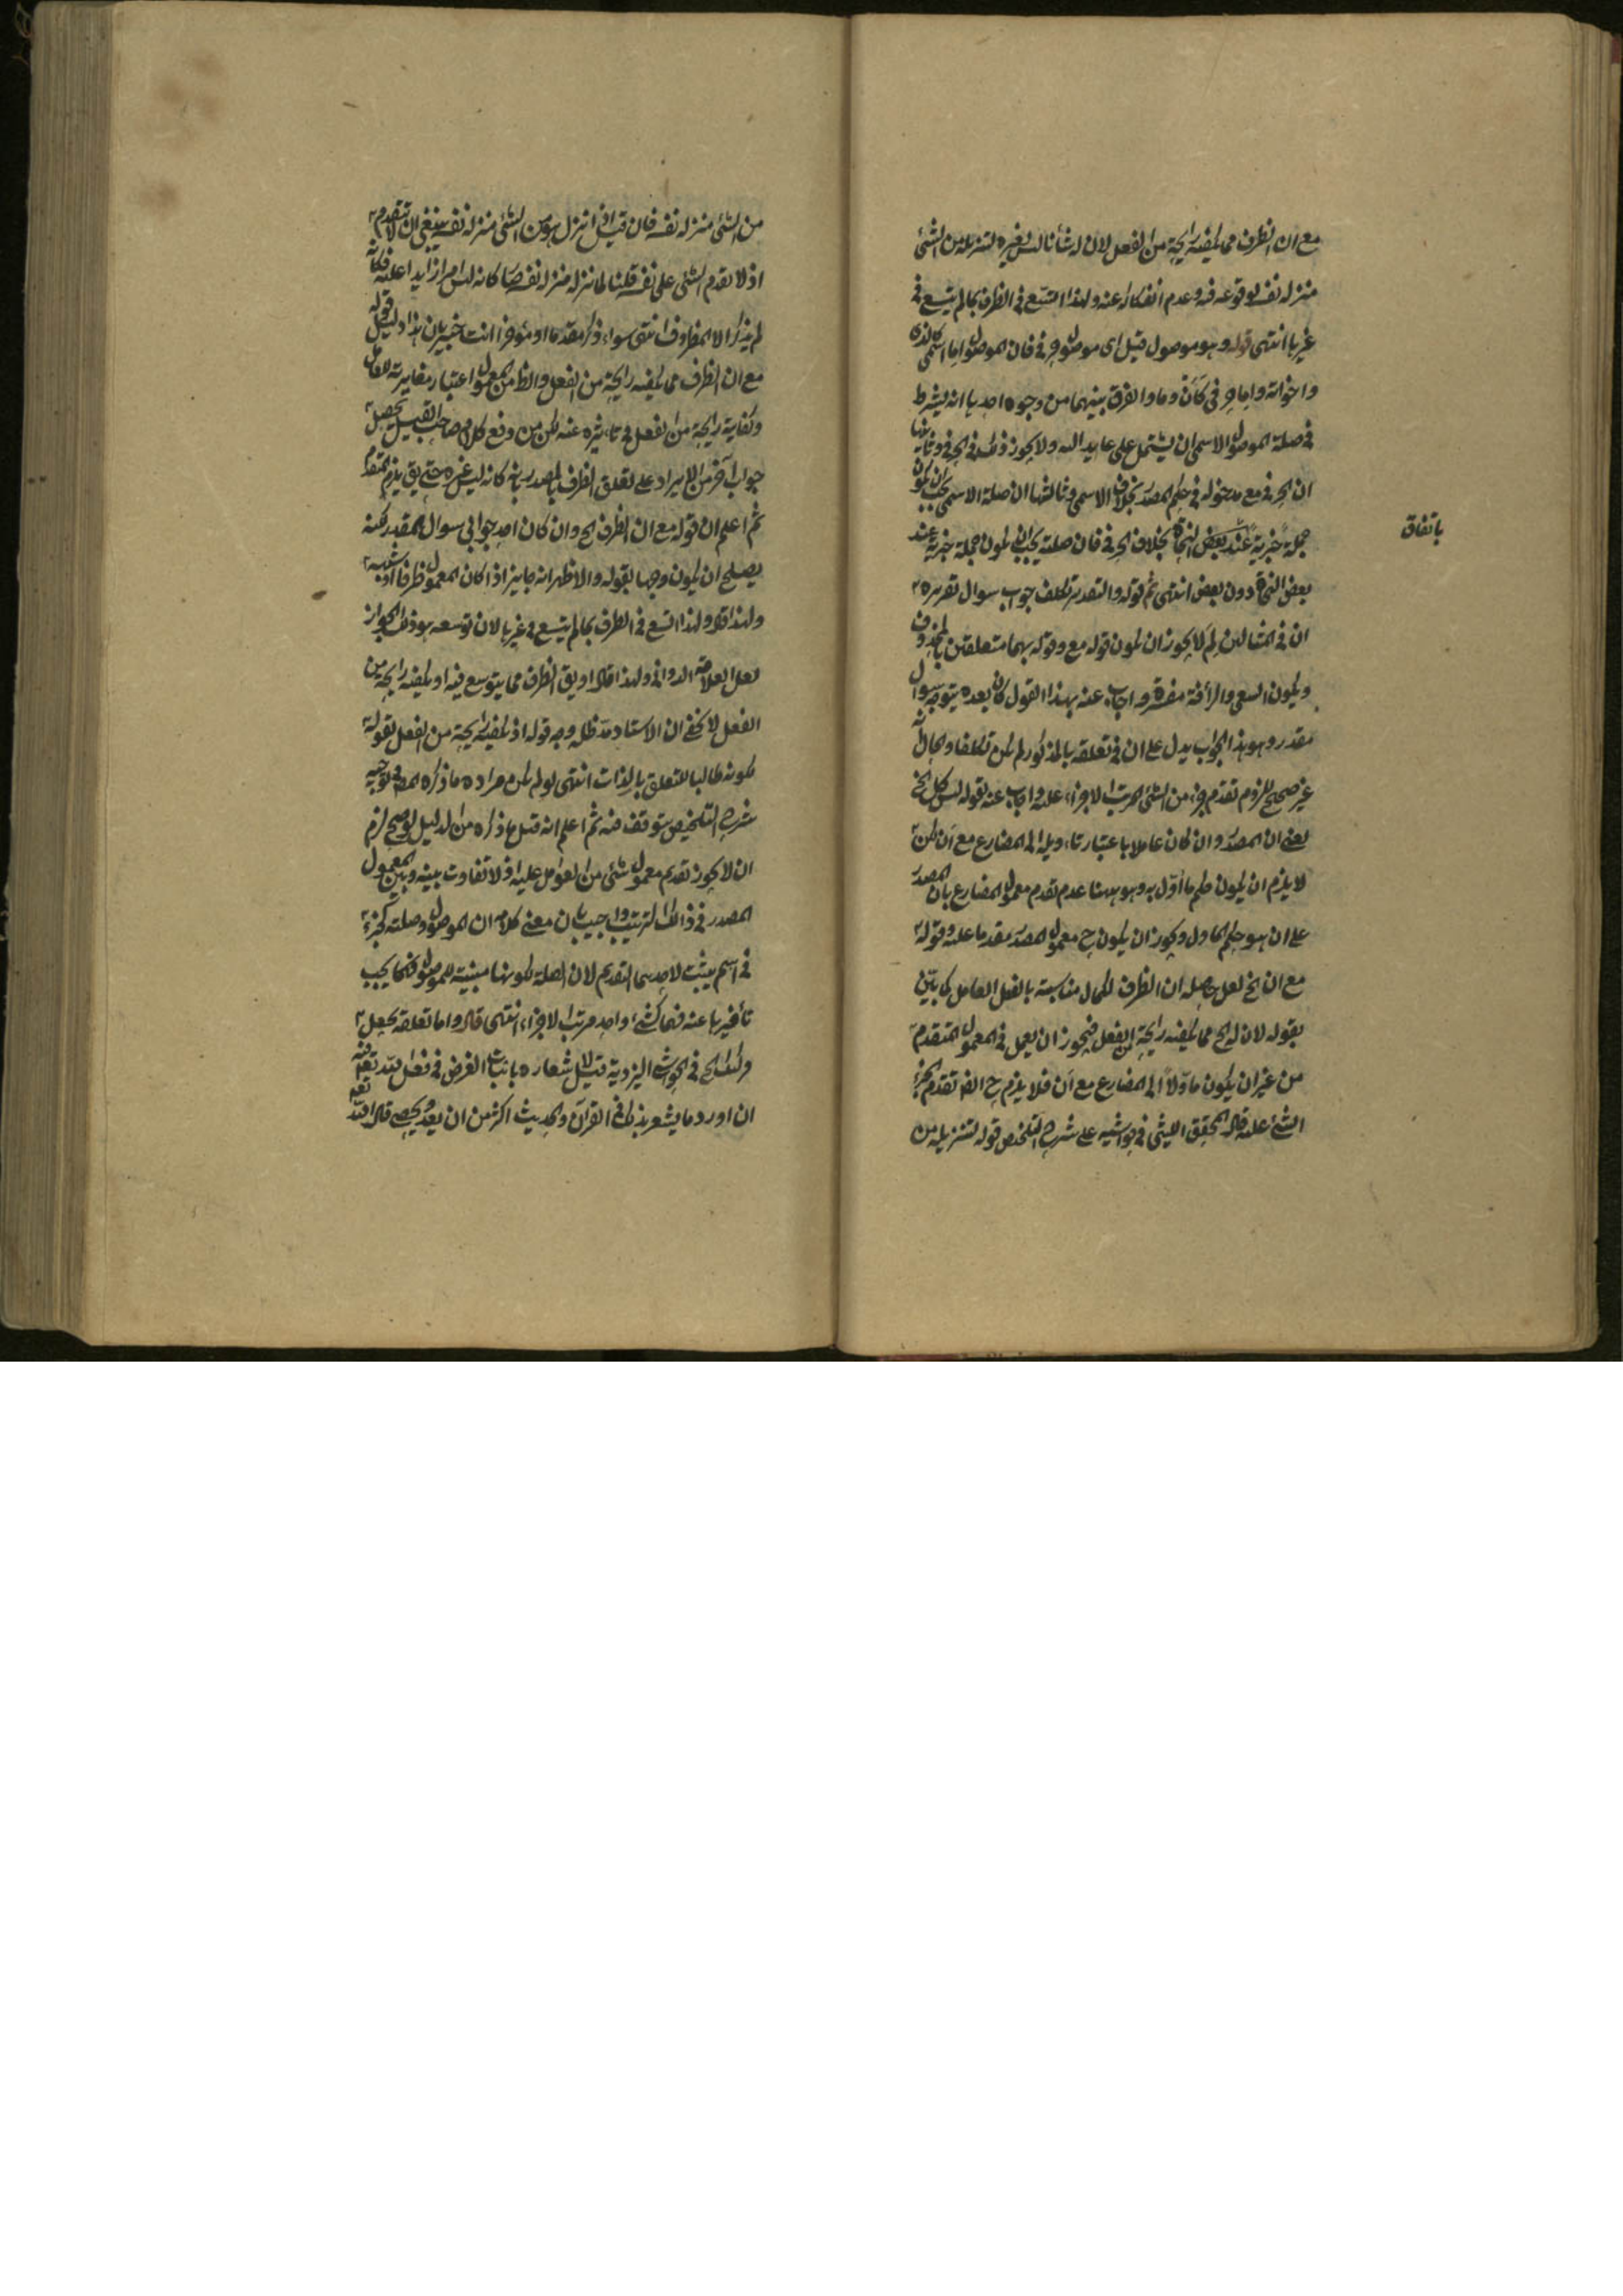 مع ان الظرف مما يكفيه رايحة من الفعل لان له شأنا ليس لغيره لتنزله من الشئ
منزلة نفسه لوقوعه فيه وعدم انفكاكه عنه ولهذا اتسع فى الظرف بما لم يتسع فى
غيرها انتهى قوله وهو موصول قيل اى موصول حرفى فان الموصول اما اسمى كالذى
واخواته واما حرفى كأن وما والفرق بينهما من وجوه احدها انه يشترط
فى صلة الموصول الاسمى ان يشتمل على عايد اليه ولا يجوز ذلك فى الحرفى وثانيها
ان الحرفى مع مدخوله فى حكم المصدر بخلاف الاسمى وثالثها ان صلة الاسمى يجب ان يكون
جملة خبرية عند بعض النحاة بخلاف الحرفى فان صلته يجب ان يكون جملة خبرية عند
باتفاق
بعض النحاة دون بعض انتهى ثم قوله والتقدير تكلف جواب سوال تقريره
ان فى المثالين لم لا يجوز ان يكون قوله مع وقوله بهما متعلقين بالمحذوف
ويكون السعى والرأفة مفسرة واجاب عنه بهذا القول كان بعده يتوجه سوال
مقدر وهو هذا الجواب يدل على ان فى تعلقه بالمذكور لم يكن تكلفا والحال انه
غير صحيح للزوم تقدم جزء من الشئ المرتب الاجزاء عليه واجاب عنه بقوله ليس كل الخ
يعنى ان المصدر وان كان عاملا باعتبار تاويله الى المضارع مع أن لكن
لا يلزم ان يكون حكم ما اول به وهو ههنا عدم تقدم معمول المضارع بان المصدر
على ان هو حكم الماول ويجوز ان يكون ح معمول المصدر مقدما عليه وقوله
مع ان الخ لعل حاصله ان الظرف لكمال مناسبته بالفعل العامل كما بين
بقوله لان له الخ مما يكفيه رايحة من الفعل فيجوز ان يعمل فى المعمول المتقدم
من غير ان يكون ماولا الى المضارع مع أن فلا يلزم ح الف تقدم الجزء
الشئ عليه قال المحقق الليثى فى حواشيه على شرح التلخيص قوله لتنزيله من
من الشئ منزلة نفسه فان قيل اذا نزل هو من الشئ منزلة نفسه ينبغى ان لا يتقدم
اذ لا تقدم الشئ على نفسه قلنا لما نزله منزلة نفسه صار كانه ليس امرا زايدا عليه فكانه
لم يذكر الا المظروف انتهى سواء ذكر مقدما او مؤخرا انت خبير بان هذا دليل قوله
مع ان الظرف مما يكفيه رايحة من الفعل والظ من المعمول اعتبار مغايرته للعامل
وكفاية رايحة من الفعل فى تاثيره عنه لكن من دفع كلام صاحب القيل يحصل
جواب آخر من الايراد على تعلق الظرف بالمصدر بانه كانه ليس غيره حتى يق يلزم التقدم
ثم اعلم ان قوله مع ان الظرف الخ وان كان احد جوابى سوال المقدر لكنه
يصلح ان يكون وجها لقوله والاظهر انه جايز اذا كان المعمول ظرفا او شبهه
ولهذا قال ولهذا اتسع فى الظرف بما لم يتسع فى غيرها لان توسعه هو ذلك الجواز
لعل العلامة الدوانى ولهذا قال او يق الظرف مما يتوسع فيه او يكفيه رايحة من
الفعل لا يخفى ان الاستاد مد ظله وجه قوله اذ يكفيه رايحة من الفعل بقوله
لكونه طالبا للتعلق بالذات انتهى لو لم يكن مراده ما ذكره المص فى توجيه
شرح التلخيص يتوقف فيه ثم اعلم انه قيل ما ذكره من الدليل لو صح لزم
ان لا يجوز تقديم معمول شئ من العوامل عليه اذ لا تفاوت بينه وبين معمول
المصدر فى ذلك الترتيب واجيب بان معنى كلامه ان الموصول وصلته كجزئى
فى اسم يثبت لاحدهما التقديم لان الصلة لكونها مبينة للموصول فكما يجب
تأخيرها عنه فهما كشئ واحد مرتب الاجزاء انتهى قال واما تعلقه بجعل
وذلك الخ فى الحواشى اليزدية قيل لاشعاره باثبات الغرض فى فعل الله تعالى
ان اورد ما يشعر بذلك فى القرآن والحديث اكثر من ان يعد ويحصى قال الله تعالى